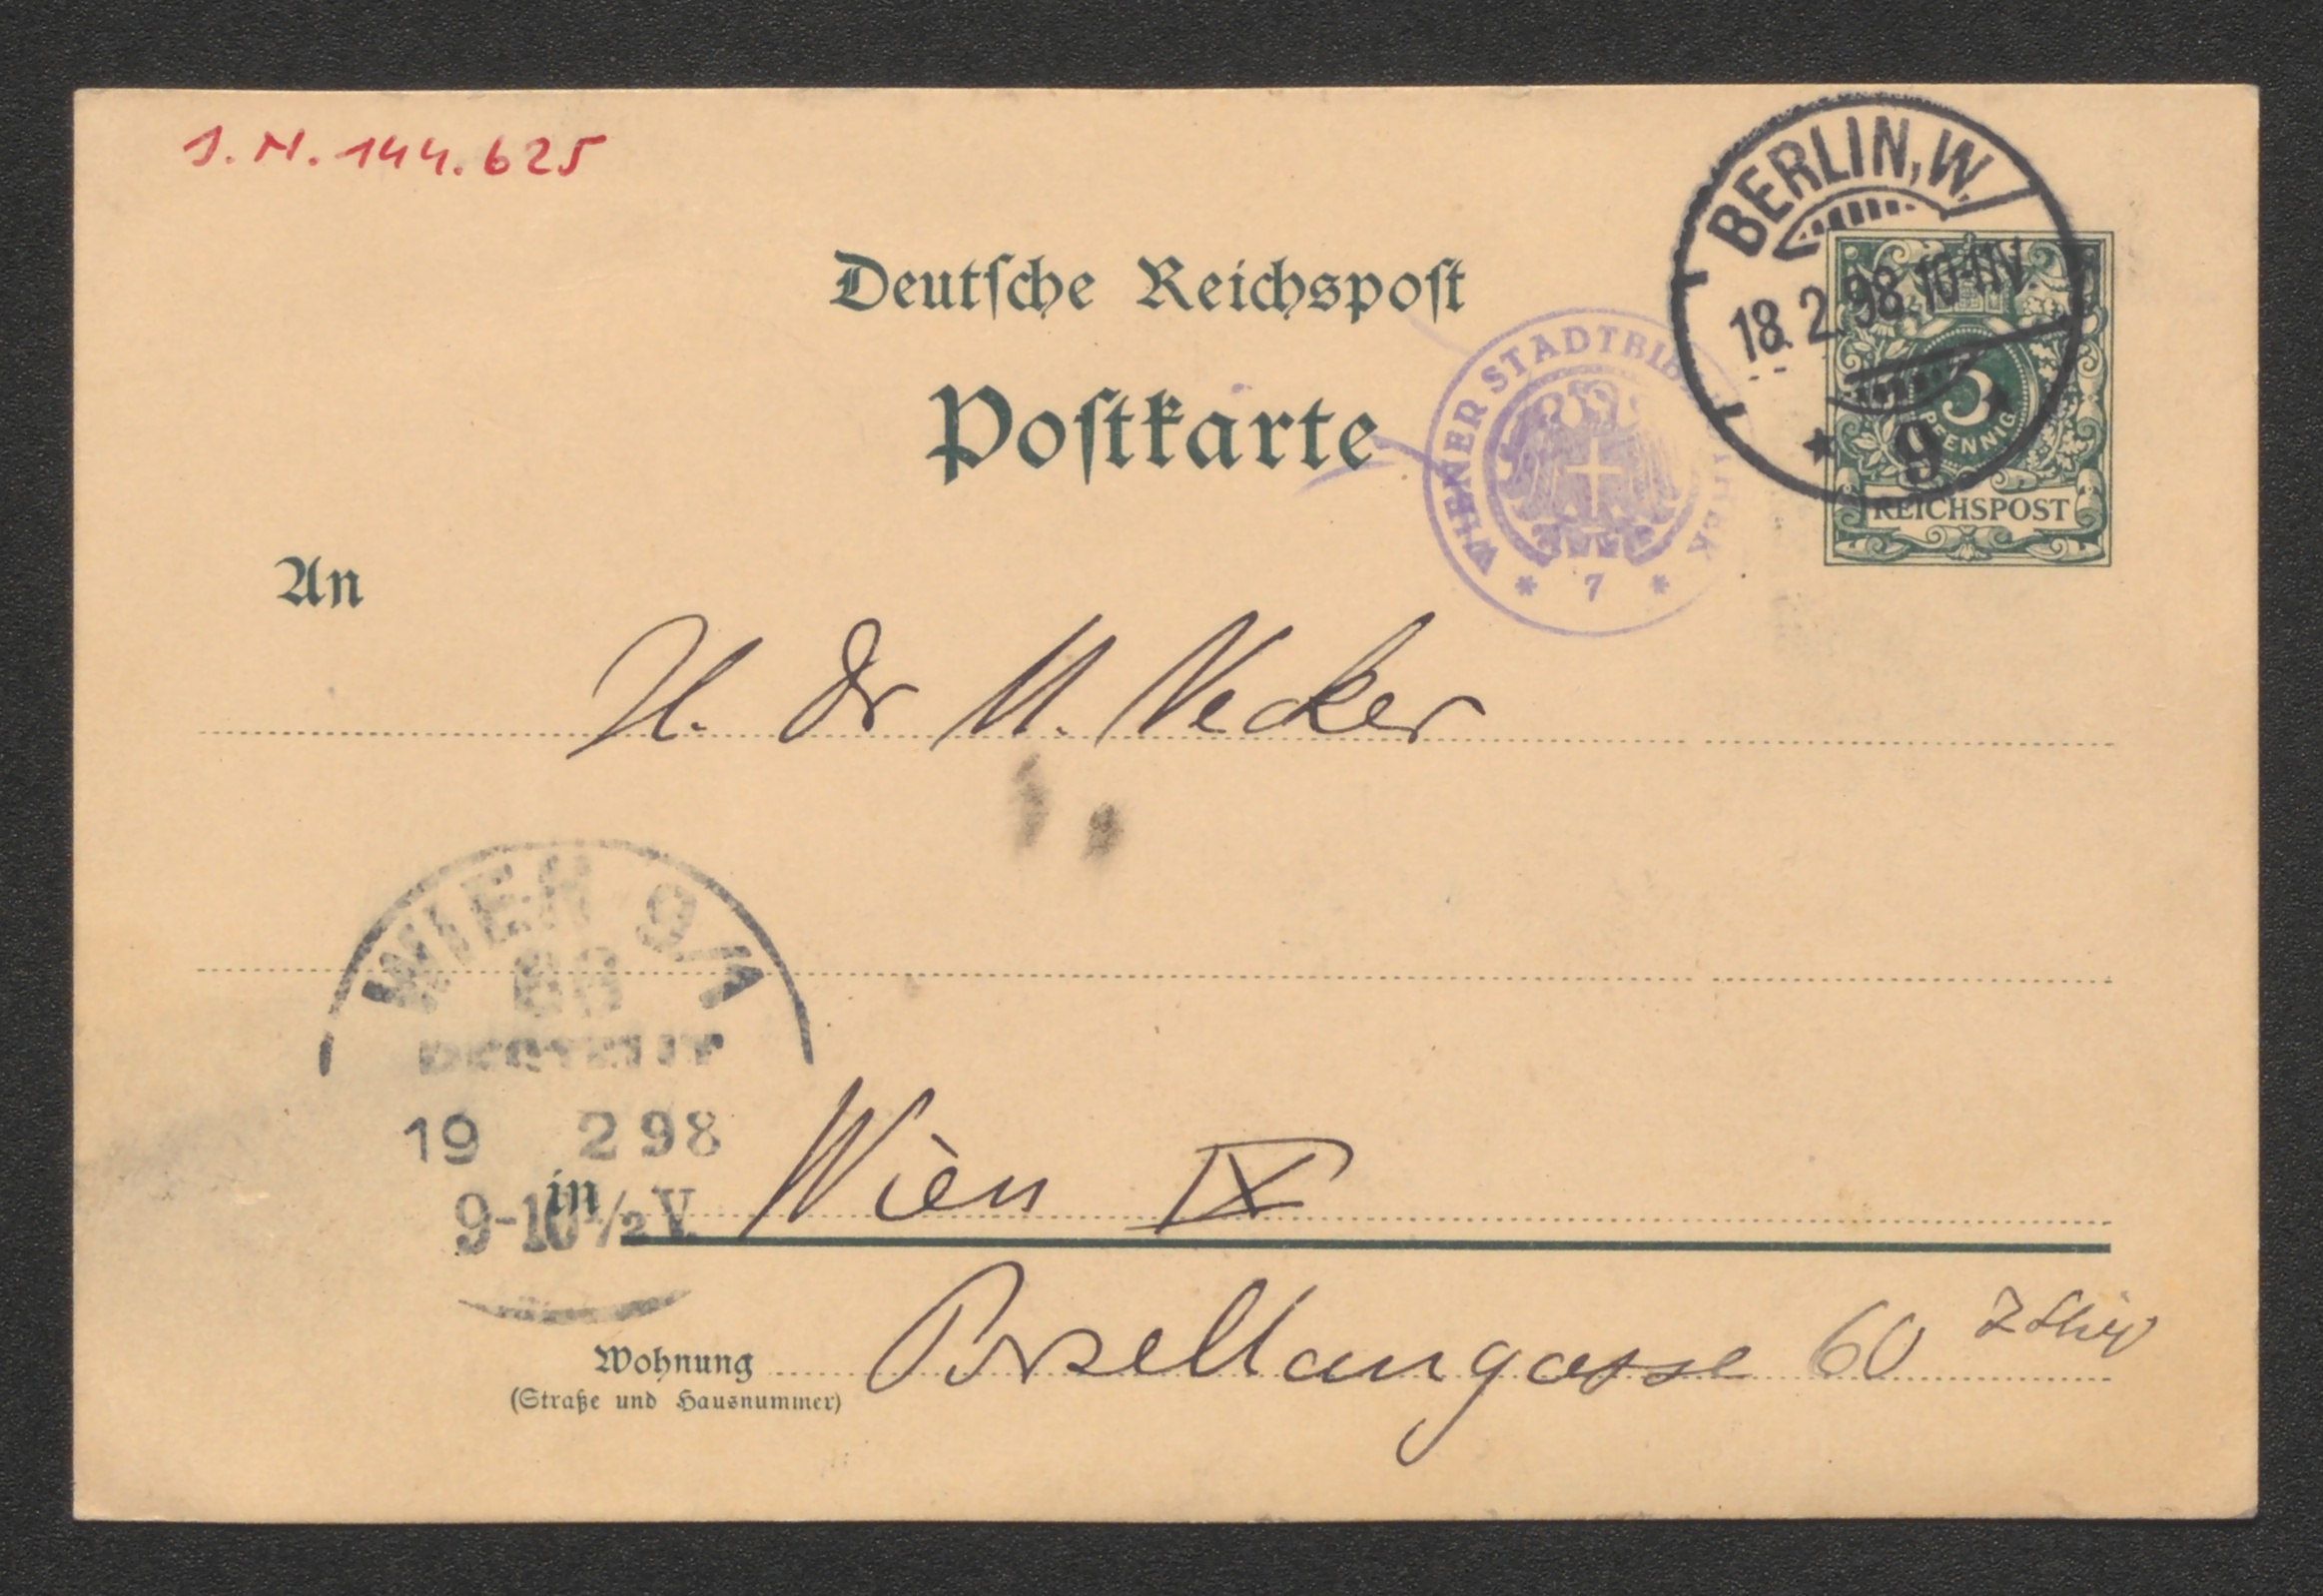 J. N. 144.625
BERLIN, W.
18. 2. 98. 10-11 N.
* 9
5
PFENNIG
REICHSPOST
Deutsche Reichspost
Postkarte
WIENER STADTBIBLIOTHEK
* 7 *
An
H. Dr M. Necker
WIEN 9/1
BESTELLT
19 2 98
9-10½ V.
in Wien IX
Wohnung Porzellangasse 60
(Straße und Hausnummer)